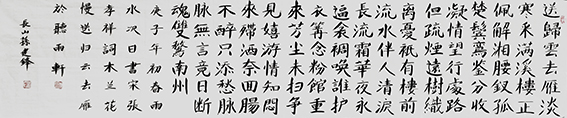 送歸雲去雁淡
寒采滿溪樓正
佩解湘腰釵孤
楚鬢鸞鑒分收
凝情望行處路
但疏煙遠樹織
離憂祇有樓前
流水伴人清淚
長流霜華夜永
逼衾裯喚誰護
衣篝念粉館重
來芳塵未掃爭
見嬉游情知悶
來殢酒奈回腸
不醉只添愁脉
脉無言竟日斷
魂雙鶩南州
庚子年初春雨
水次日書宋張
孝祥詞木蘭花
慢送歸雲去雁
於聽雨軒
長山孫建鋒